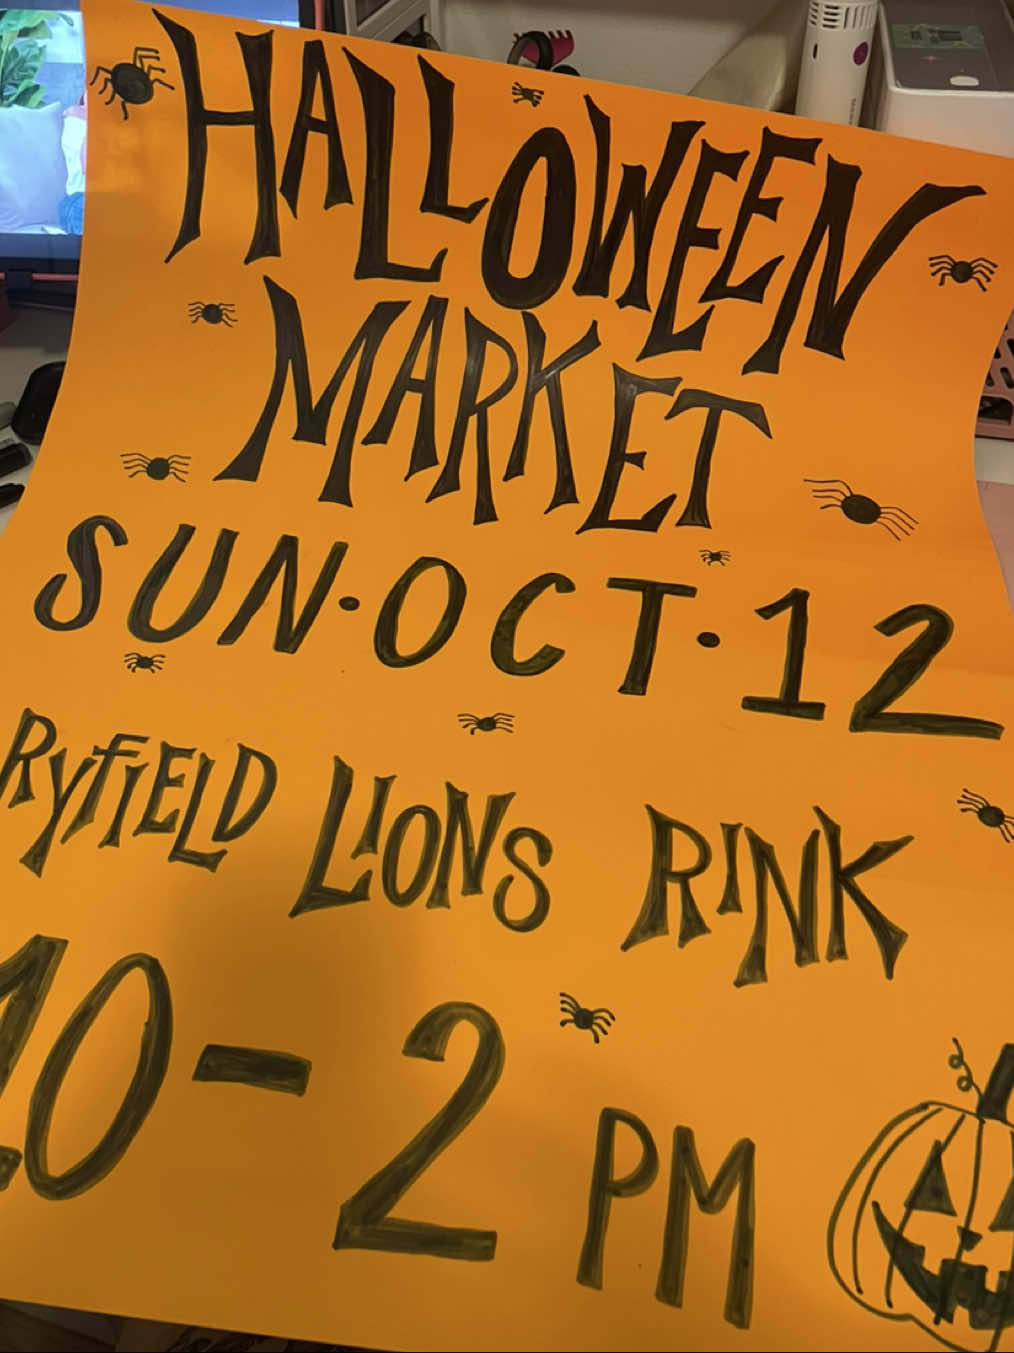 HALLOWEEN
MARKET
SUN·OCT·12
RYFIELD LIONS RINK
10-2 PM